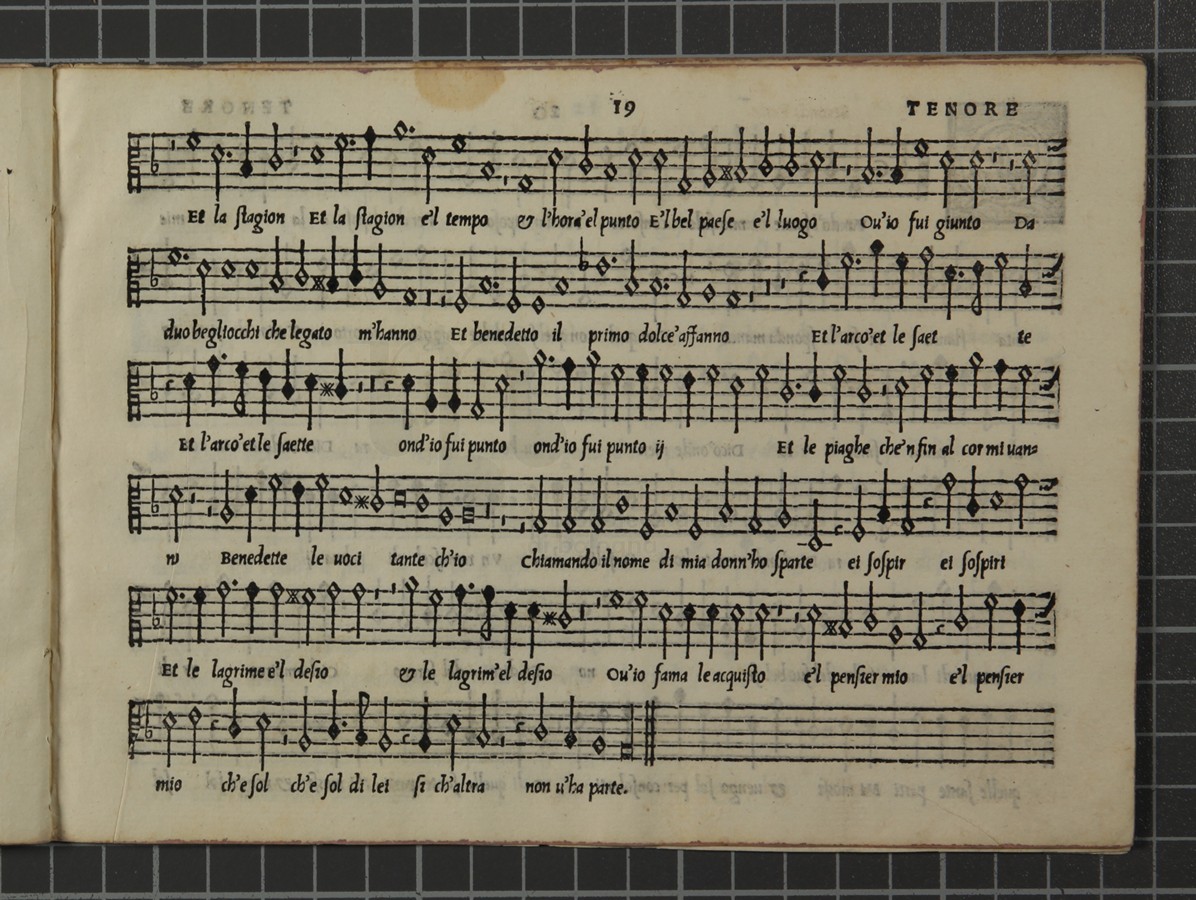 19 TENORE
Et la ſtagion Et la ſtagion e'l tempo & l'hora'el punto E'l bel paeſe e'l luogo Ou'io fui giunto Da
duo begliocchi che legato m'hanno Et benedetto il primo dolce'affanno Et l'arco'et le ſaet te
Et l'arco'et le ſaette ond'io fui punto ond'io fui punto ij Et le piaghe che'n fin al cor mi uan=
no Benedette le uoci tante ch'io Chiamando il nome di mia donn'ho ſparte ei ſoſpir ei ſoſpiri
Et le lagrime e'l deſio & le lagrim'el deſio Ou'io fama le acquiſto e'l penſier mio e'l penſier
mio ch'e ſol ch'e ſol di lei ſi ch'altra non u'ha parte.